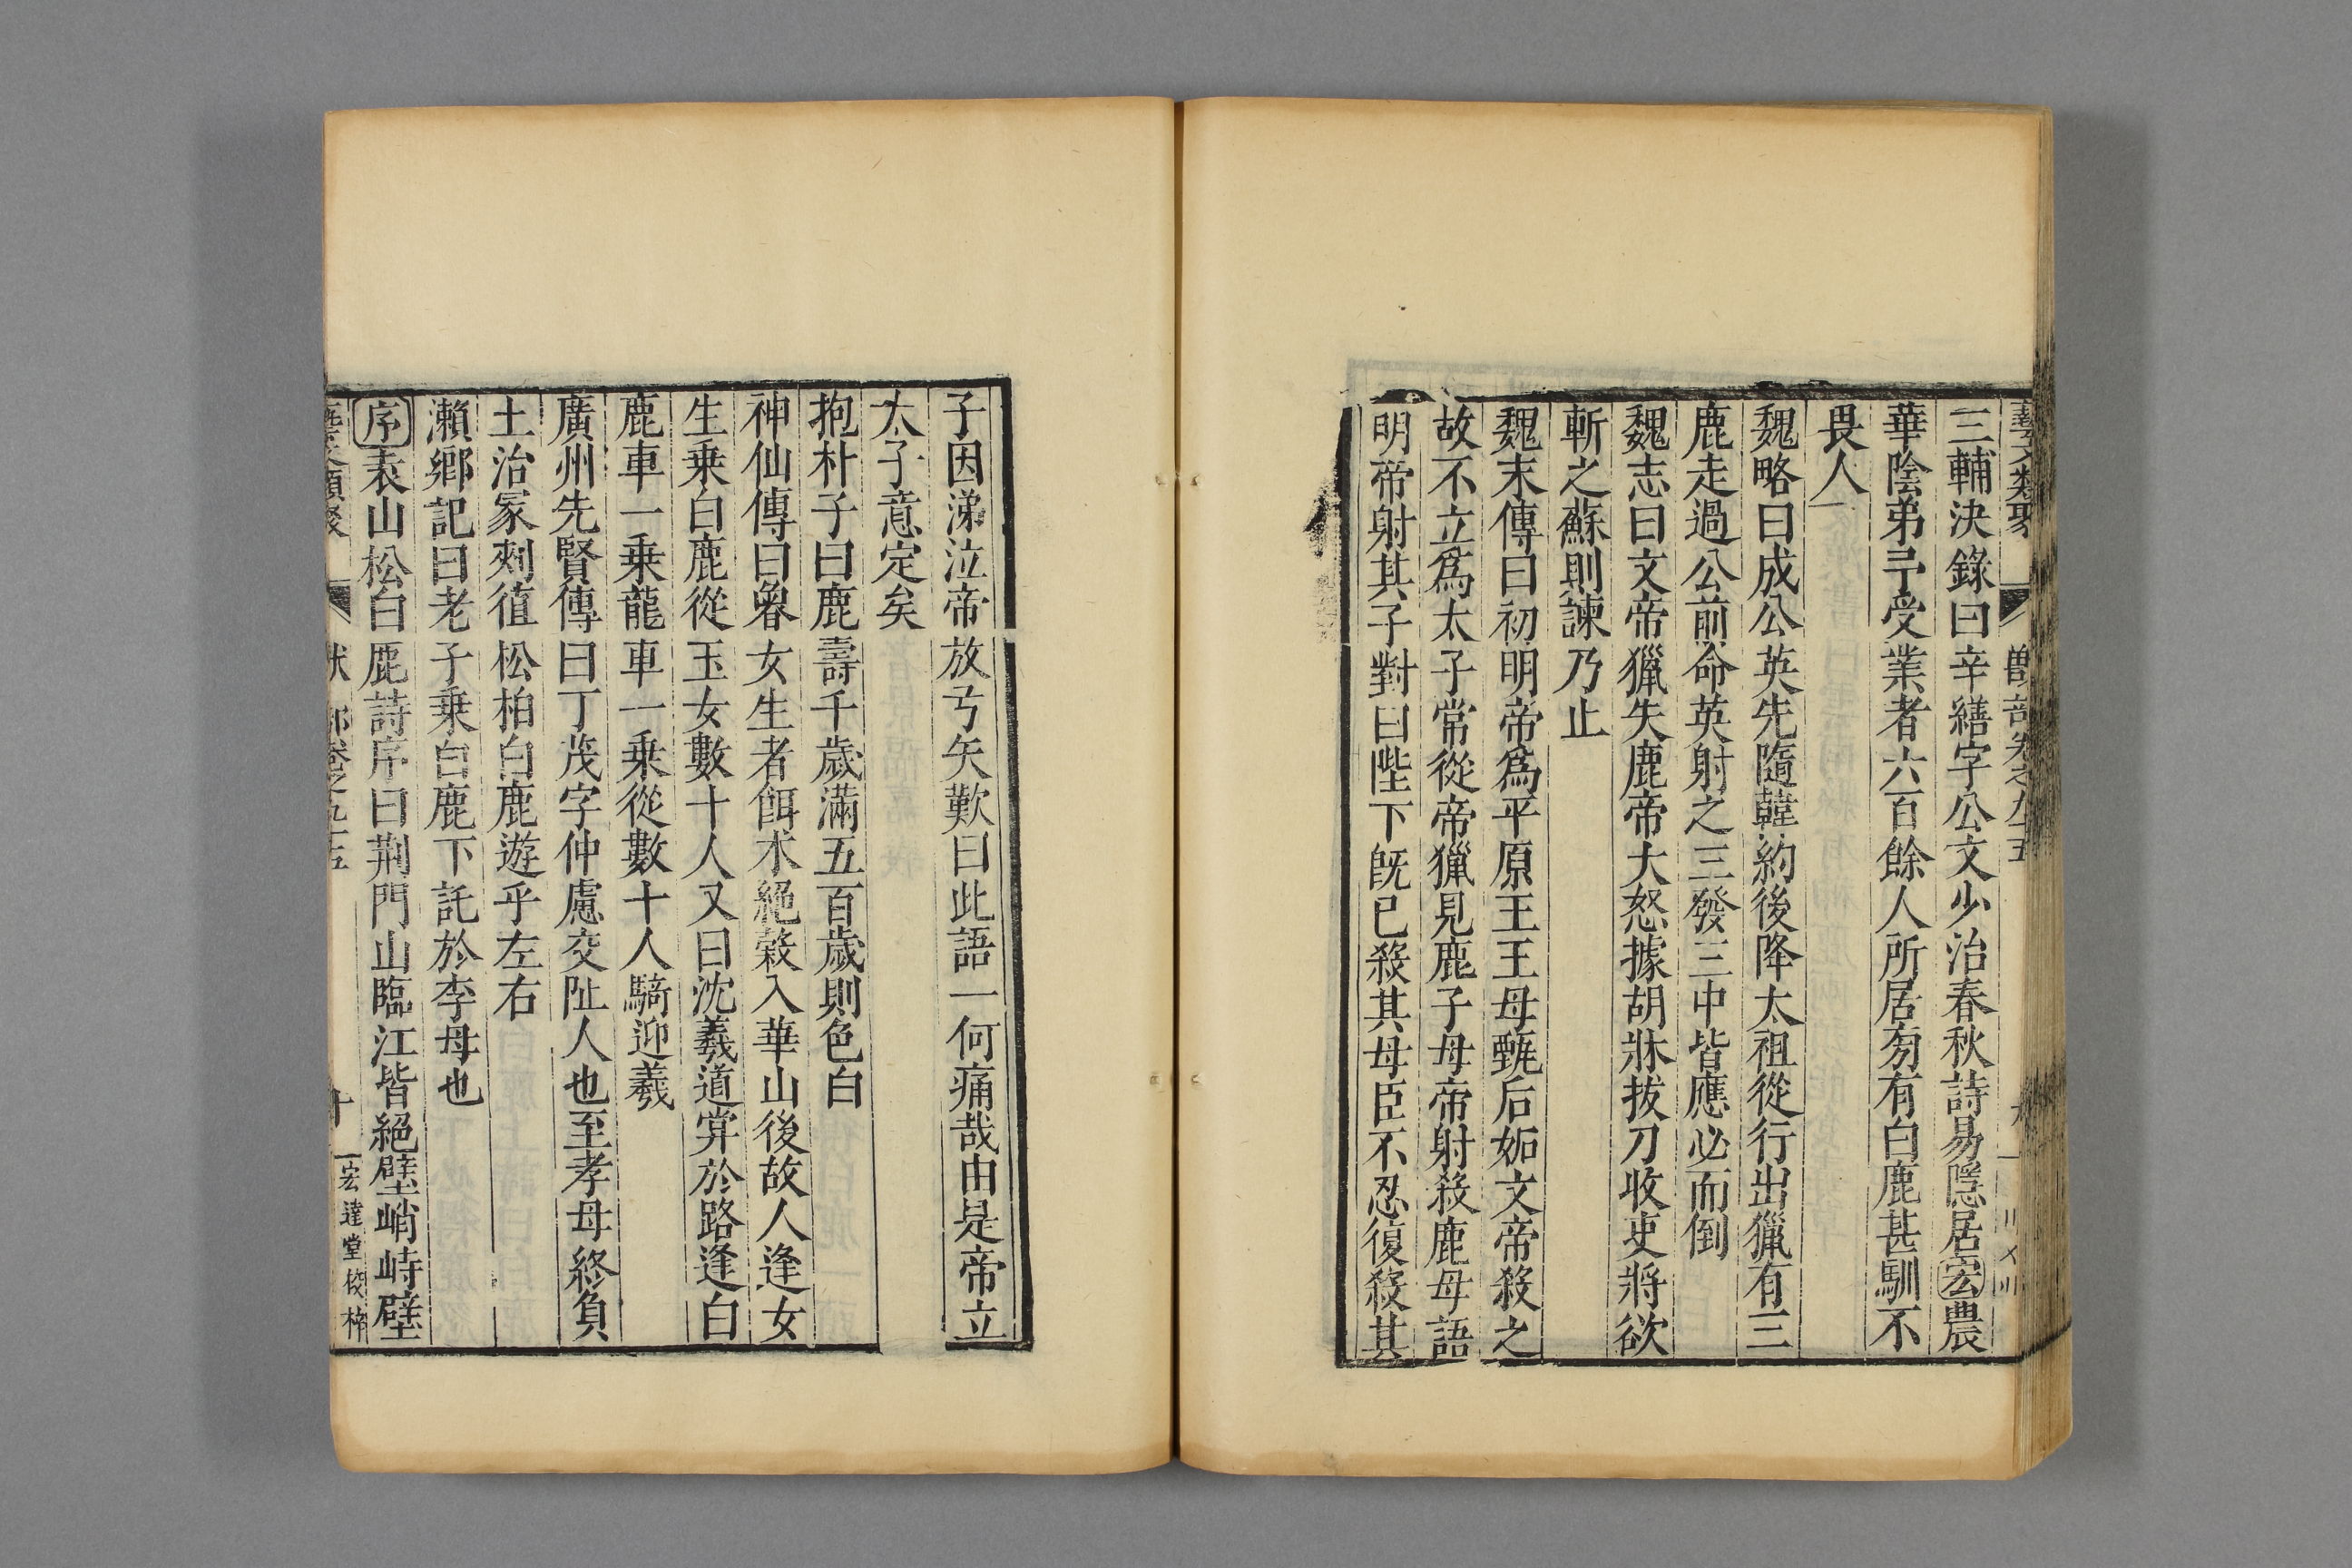 藝文類聚 獸部卷之九十五 九
三輔決錄曰辛繕字公文少治春秋詩易隱居宏農
華陰弟子受業者六百餘人所居旁有白鹿甚馴不
畏人
魏略曰成公英先隨韓約後降太祖從行出獵有三
鹿走過公前命英射之三發三中皆應必而倒
魏志曰文帝獵失鹿帝大怒據胡牀拔刀收吏將欲
斬之蘇則諫乃止
魏末傳曰初明帝爲平原王王母甄后妬文帝殺之
故不立爲太子常從帝獵見鹿子母帝射殺鹿母語
明帝射其子對曰陛下旣已殺其母臣不忍復殺其
子因涕泣帝放弓矢歎曰此語一何痛哉由是帝立
太子意定矣
抱朴子曰鹿壽千歲滿五百歲則色白
神仙傳曰魯女生者餌朮絕穀入華山後故人逢女
生乗白鹿從玉女數十人又曰沈羲道穽於路逢白
鹿車一乗龍車一乗從數十人騎迎羲
廣州先賢傳曰丁茂字仲慮交阯人也至孝母終負
土治冢刾值松柏白鹿遊乎左右
瀨鄉記曰老子乗白鹿下託於李母也
序袁山松白鹿詩序曰荆門山臨江皆絕壁峭峙壁
藝文類聚 獸部卷之九十五 十 宏達堂校梓